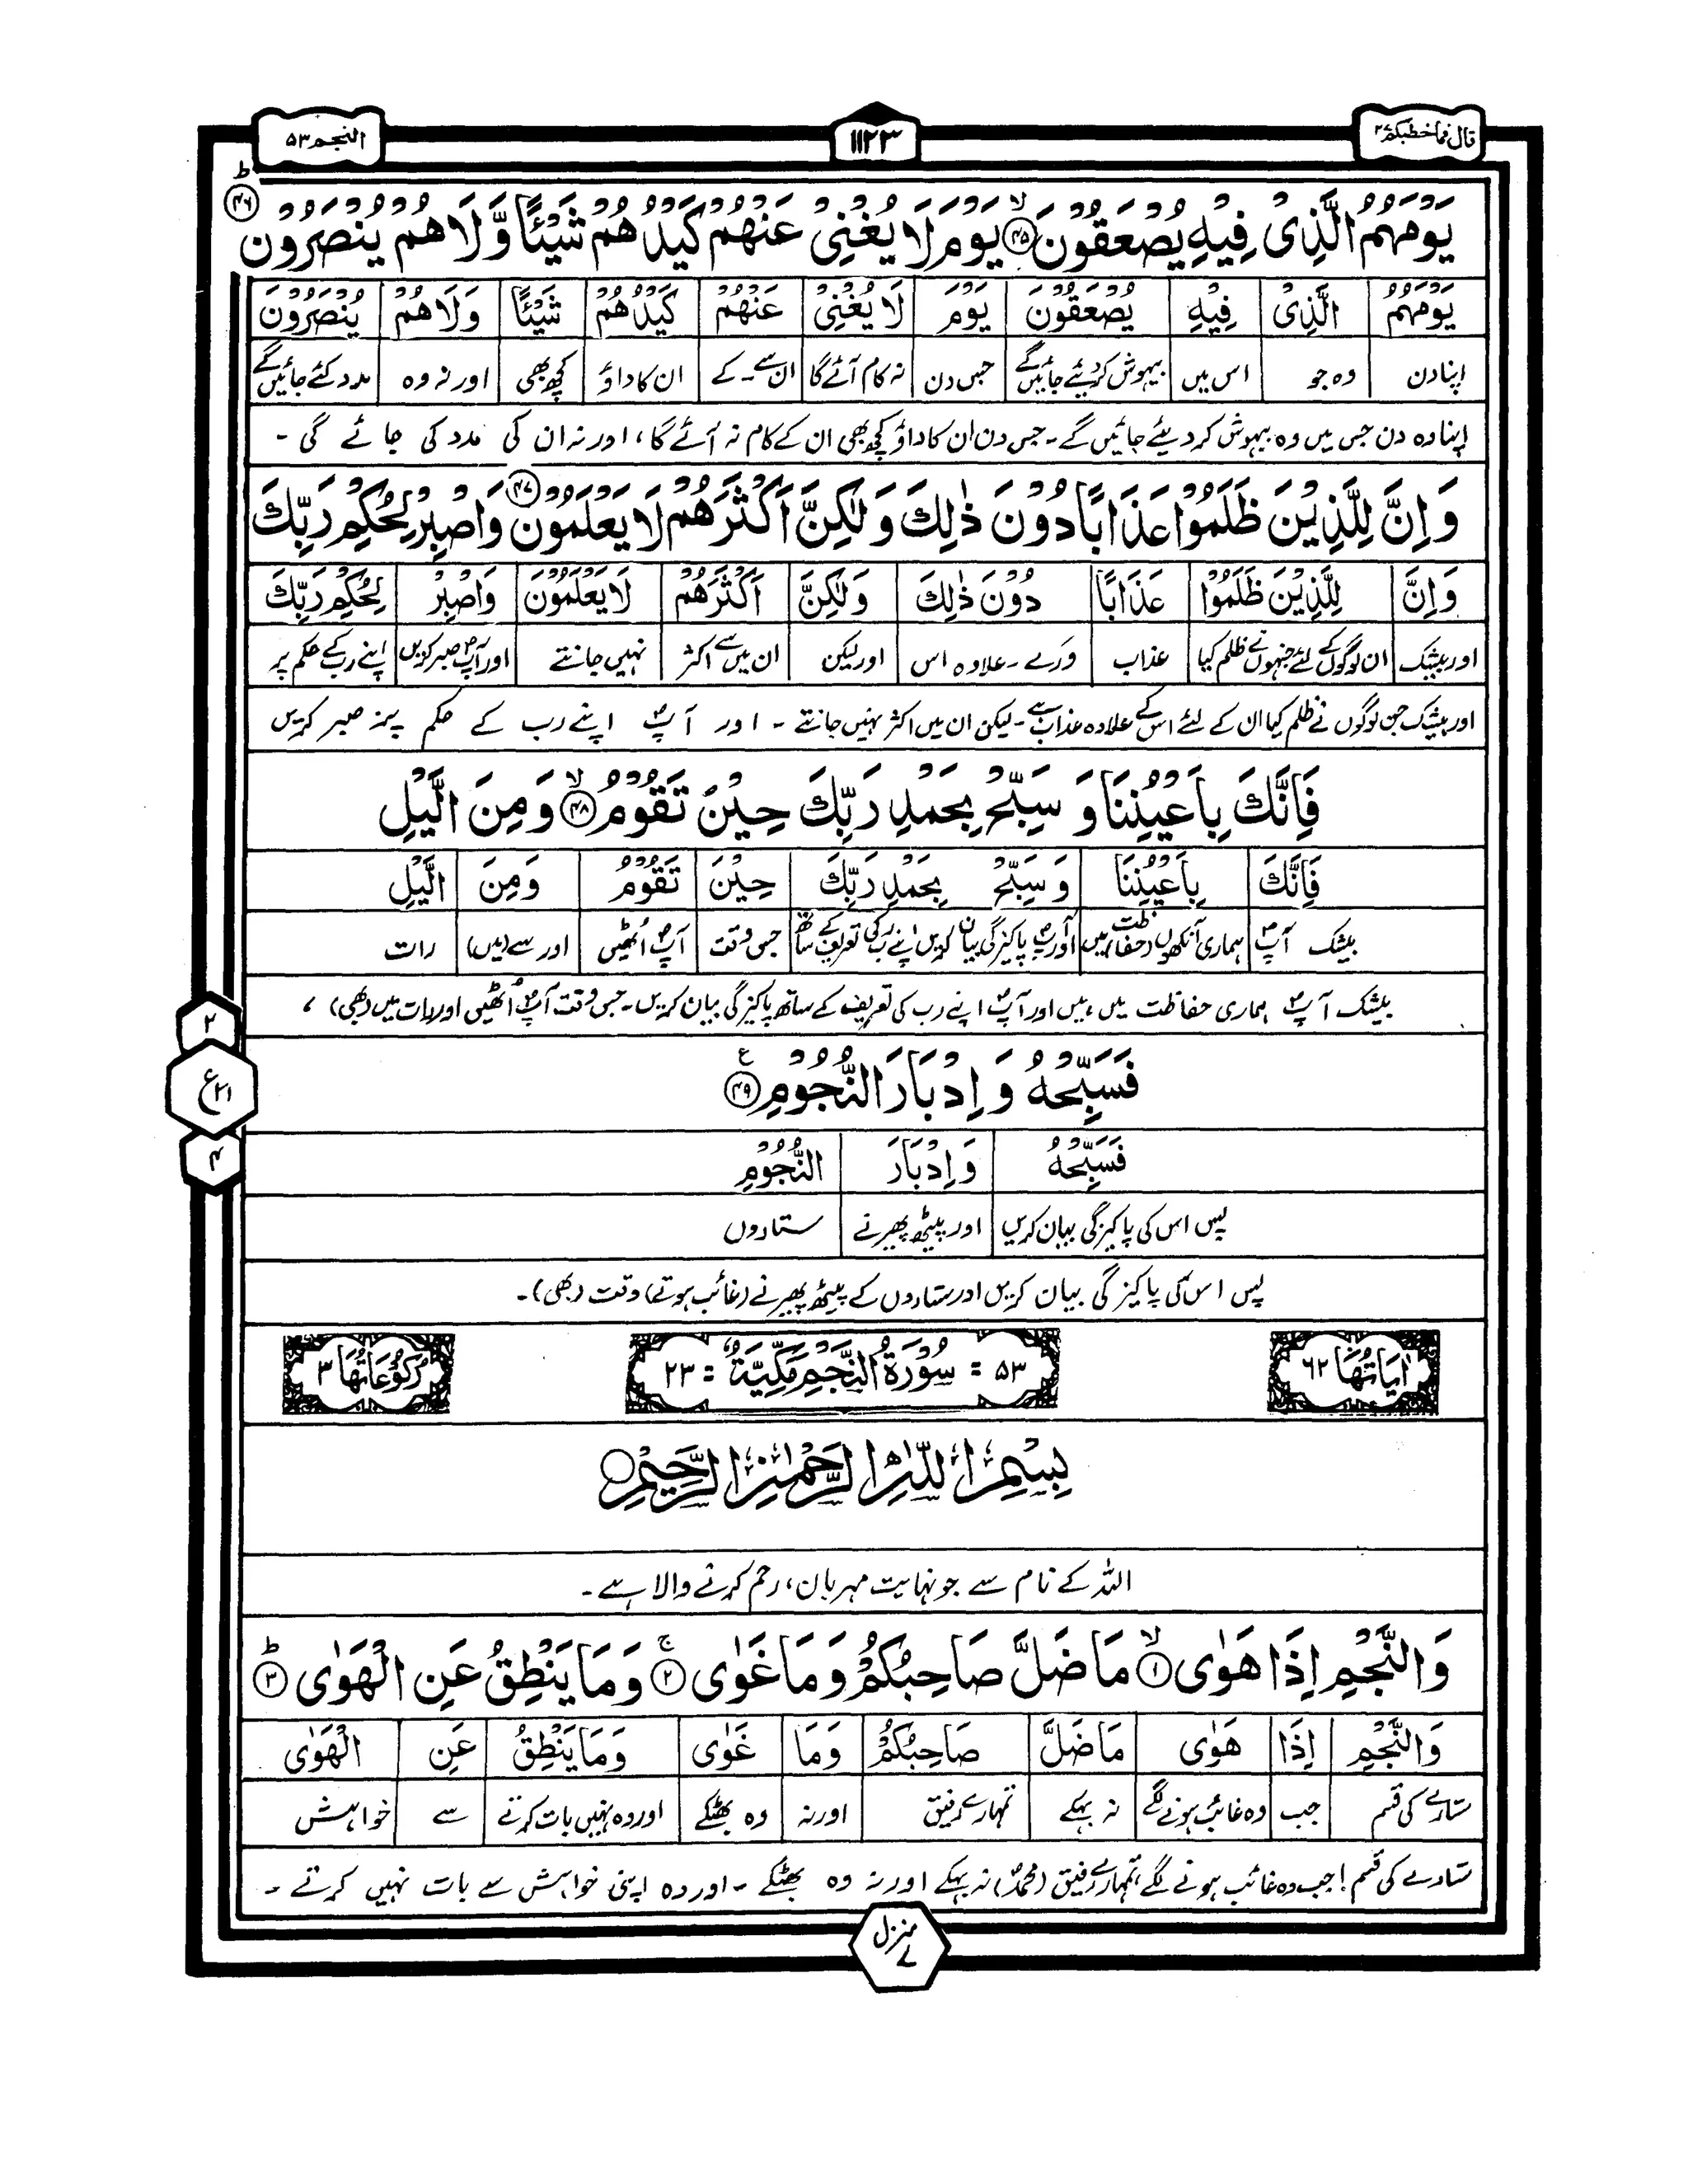 قال فما خطبکم ۲۷
۱۱۲۳
النجم ۵۳
يَوْمَهُمُ الَّذِيْ فِيْهِ يُصْعَقُوْنَ ۙ﴿۴۵﴾ يَوْمَ لَا يُغْنِيْ عَنْهُمْ كَيْدُهُمْ شَيْئًا وَّلَا هُمْ يُنْصَرُوْنَ ؕ﴿۴۶﴾
يَوْمَهُمُ الَّذِيْ فِيْهِ يُصْعَقُوْنَ يَوْمَ لَا يُغْنِيْ عَنْهُمْ كَيْدُهُمْ شَيْئًا وَلَا هُمْ يُنْصَرُوْنَ
اپنا دن وہ جو اس میں بیہوش کردیئے جائیں گے جس دن نہ کام آئے گا ان سے۔ کے ان کا داؤ کچھ بھی اور نہ وہ مدد کئے جائیں گے
اپنا وہ دن جس میں وہ بیہوش کر دیئے جائیں گے۔ جس دن ان کا داؤ کچھ بھی ان کے کام نہ آئے گا، اور نہ ان کی مدد کی جائے گی ۔
وَاِنَّ لِلَّذِيْنَ ظَلَمُوْا عَذَابًا دُوْنَ ذٰلِكَ وَلٰكِنَّ اَكْثَرَهُمْ لَا يَعْلَمُوْنَ ﴿۴۷﴾ وَاصْبِرْ لِحُكْمِ رَبِّكَ
وَاِنَّ لِلَّذِيْنَ ظَلَمُوْا عَذَابًا دُوْنَ ذٰلِكَ وَلٰكِنَّ اَكْثَرَهُمْ لَا يَعْلَمُوْنَ وَاصْبِرْ لِحُكْمِ رَبِّكَ
اور بیشک ان لوگوں کے لئے جنہوں نے ظلم کیا عذاب ورے۔ علاوہ اس اور لیکن ان میں سے اکثر نہیں جانتے اور آپؐ صبر کریں اپنے رب کے حکم پر
اور بیشک جن لوگوں نے ظلم کیا ان کے لئے اس کے علاوہ عذاب ہے۔ لیکن ان میں اکثر نہیں جانتے ۔ اور آپؐ اپنے رب کے حکم پر صبر کریں
فَاِنَّكَ بِاَعْيُنِنَا وَ سَبِّحْ بِحَمْدِ رَبِّكَ حِيْنَ تَقُوْمُ ۙ﴿۴۸﴾ وَمِنَ الَّيْلِ
فَاِنَّكَ بِاَعْيُنِنَا وَ سَبِّحْ بِحَمْدِ رَبِّكَ حِيْنَ تَقُوْمُ وَمِنَ الَّيْلِ
بیشک آپؐ ہماری آنکھوں (حفاظت) میں اور آپؐ پاکیزگی بیان کریں اپنے رب کی تعریف کے ساتھ جس وقت آپؐ اُٹھیں اور سے (میں) رات
بیشک آپؐ ہماری حفاظت میں ہیں اور آپؐ اپنے رب کی تعریف کے ساتھ پاکیزگی بیان کریں۔ جس وقت آپؐ اُٹھیں اور رات میں (بھی) ،
فَسَبِّحْهُ وَ اِدْبَارَ النُّجُوْمِ ﴿۴۹﴾ ع
۲
ع ۲۱
۴
فَسَبِّحْهُ وَ اِدْبَارَ النُّجُوْمِ
پس اس کی پاکیزگی بیان کریں اور پیٹھ پھیرنے ستاروں
پس اس کی پاکیزگی بیان کریں اور ستاروں کے پیٹھ پھیرنے (غائب ہوتے) وقت (بھی)۔
اٰيَاتُهَا ۶۲
۵۳ = سُوْرَةُ النَّجْمِ مَكِّيَّةٌ = ۲۳
رُكُوْعَاتُهَا ۳
بِسْمِ اللّٰهِ الرَّحْمٰنِ الرَّحِيْمِ
اللہ کے نام سے جو نہایت مہربان، رحم کرنے والا ہے۔
وَالنَّجْمِ اِذَا هَوٰى ۙ﴿۱﴾ مَا ضَلَّ صَاحِبُكُمْ وَمَا غَوٰى ۚ﴿۲﴾ وَمَا يَنْطِقُ عَنِ الْهَوٰى ؕ﴿۳﴾
وَالنَّجْمِ اِذَا هَوٰى مَا ضَلَّ صَاحِبُكُمْ وَمَا غَوٰى وَمَا يَنْطِقُ عَنِ الْهَوٰى
ستارے کی قسم جب وہ غائب ہونے لگے نہ بہکے تمہارے رفیق اور نہ وہ بھٹکے اور وہ نہیں بات کرتے سے خواہش
ستارے کی قسم! جب وہ غائب ہونے لگے، تمہارے رفیق (محمدؐ) نہ بہکے اور نہ وہ بھٹکے ۔ اور وہ اپنی خواہش سے بات نہیں کرتے ۔
منزل ۷